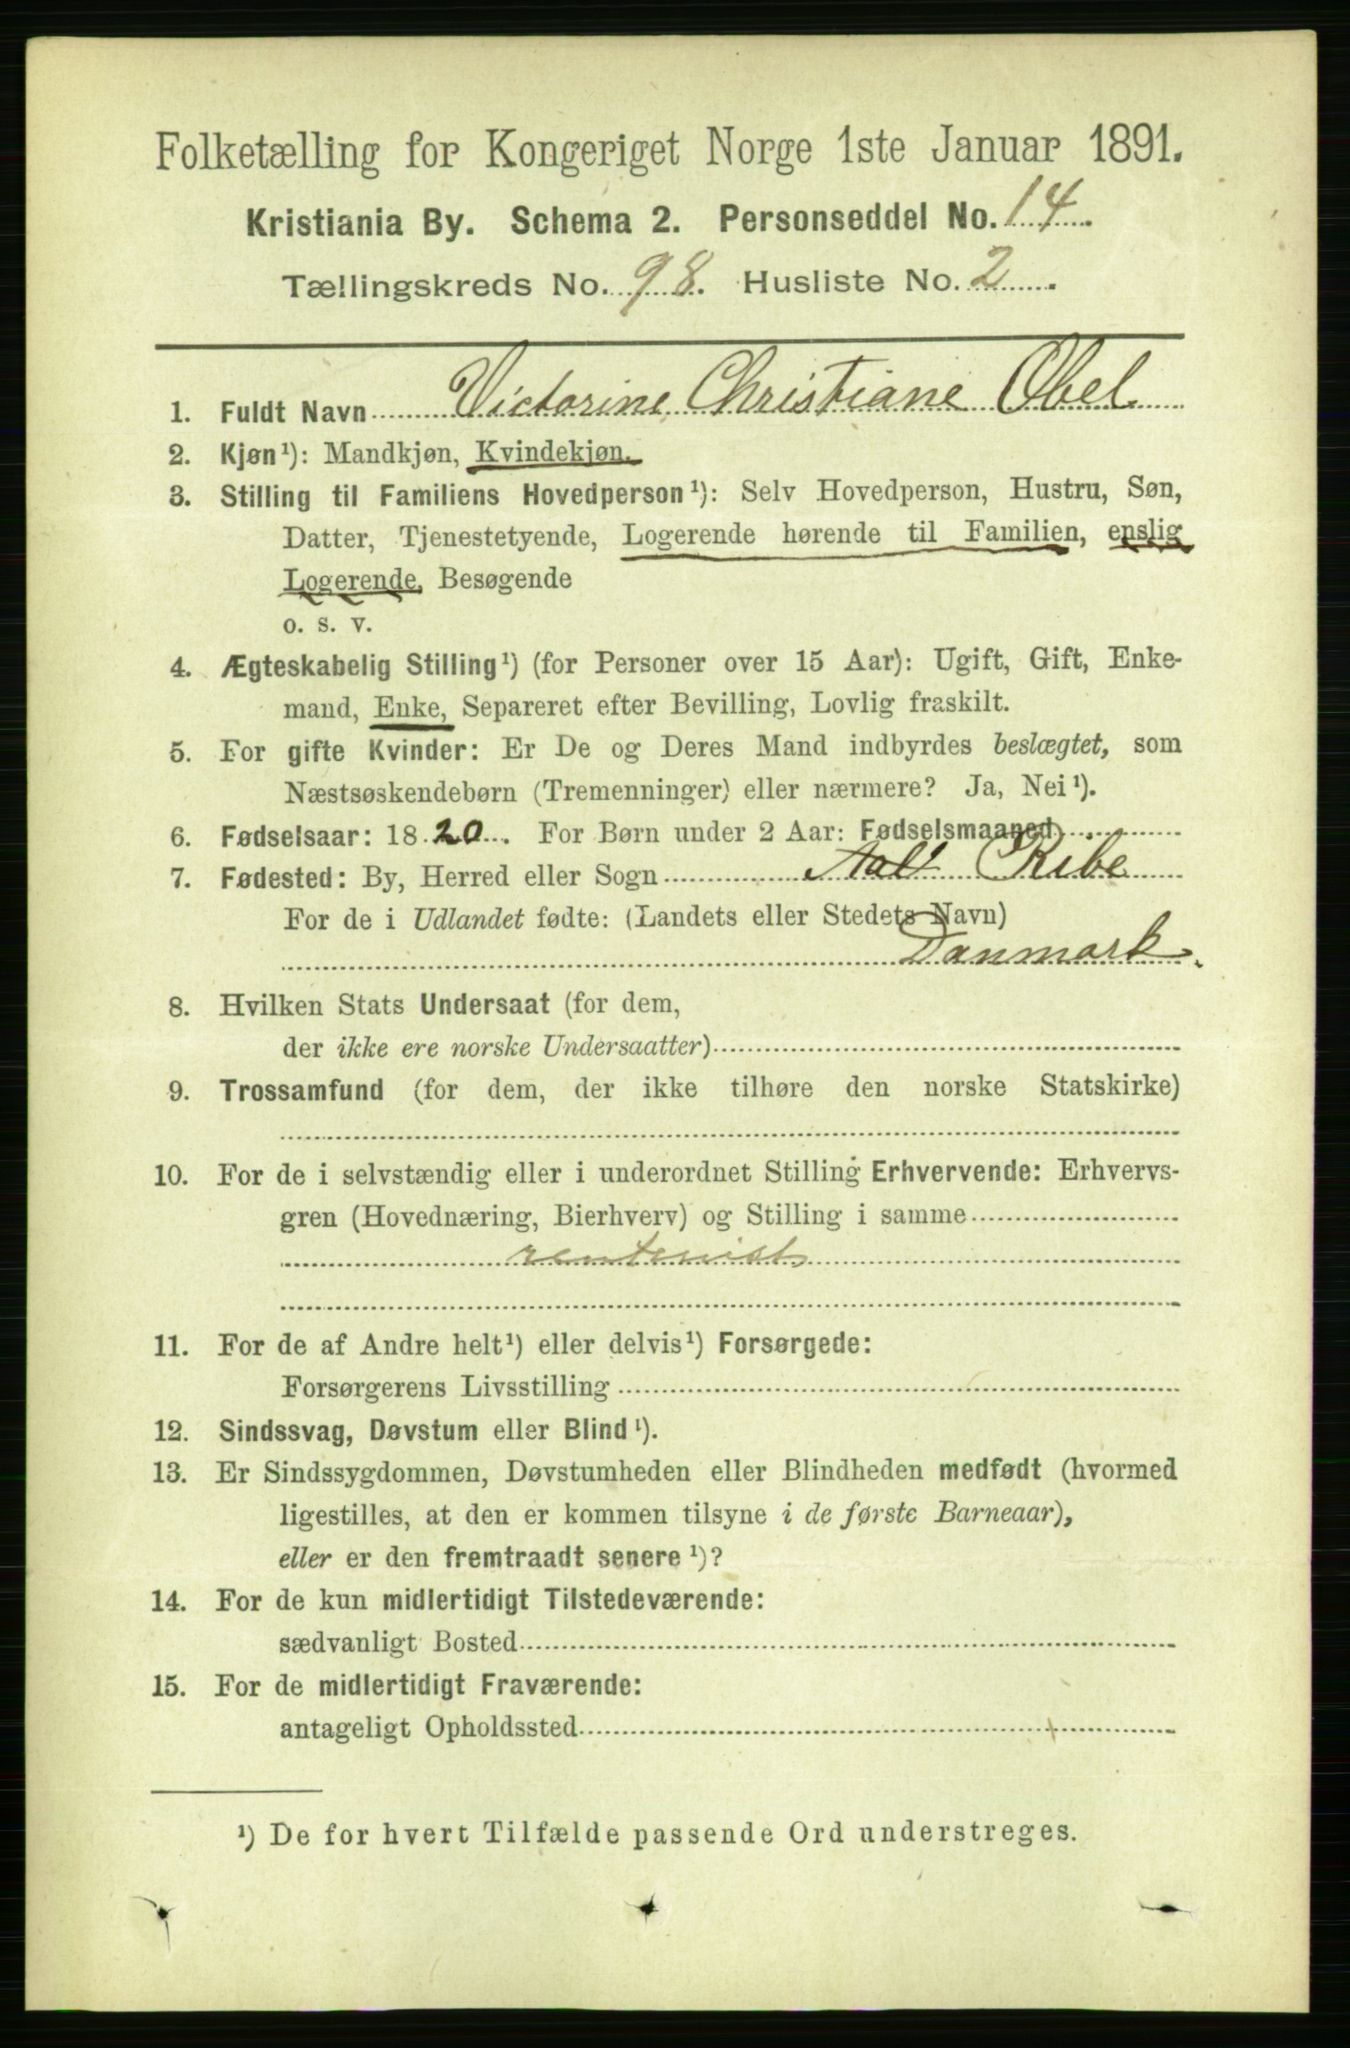 Folketælling for Kongeriget Norge 1ste Januar 1891.
Kristiania By. Schema 2. Personseddel No. 14.
Tællingskreds No. 98. Husliste No. 2.
1. Fuldt Navn Victorine Christiane Obel
2. Kjøn¹): Mandkjøn, Kvindekjøn.
3. Stilling til Familiens Hovedperson¹): Selv Hovedperson, Hustru, Søn,
Datter, Tjenestetyende, Logerende hørende til Familien, enslig
Logerende, Besøgende
o. s. v.
4. Ægteskabelig Stilling¹) (for Personer over 15 Aar): Ugift, Gift, Enke-
mand, Enke, Separeret efter Bevilling, Lovlig fraskilt.
5. For gifte Kvinder: Er De og Deres Mand indbyrdes beslægtet, som
Næstsøskendebørn (Tremenninger) eller nærmere? Ja, Nei¹).
6. Fødselsaar: 1820. For Børn under 2 Aar: Fødselsmaaned
7. Fødested: By, Herred eller Sogn Aal Ribe
For de i Udlandet fødte: (Landets eller Stedets Navn)
Danmark.
8. Hvilken Stats Undersaat (for dem,
der ikke ere norske Undersaatter)
9. Trossamfund (for dem, der ikke tilhøre den norske Statskirke)
10. For de i selvstændig eller i underordnet Stilling Erhvervende: Erhvervs-
gren (Hovednæring, Bierhverv) og Stilling i samme
rentenist
11. For de af Andre helt¹) eller delvis¹) Forsørgede:
Forsørgerens Livsstilling
12. Sindssvag, Døvstum eller Blind¹).
13. Er Sindssygdommen, Døvstumheden eller Blindheden medfødt (hvormed
ligestilles, at den er kommen tilsyne i de første Barneaar),
eller er den fremtraadt senere¹)?
14. For de kun midlertidigt Tilstedeværende:
sædvanligt Bosted
15. For de midlertidigt Fraværende:
antageligt Opholdssted
¹) De for hvert Tilfælde passende Ord understreges.